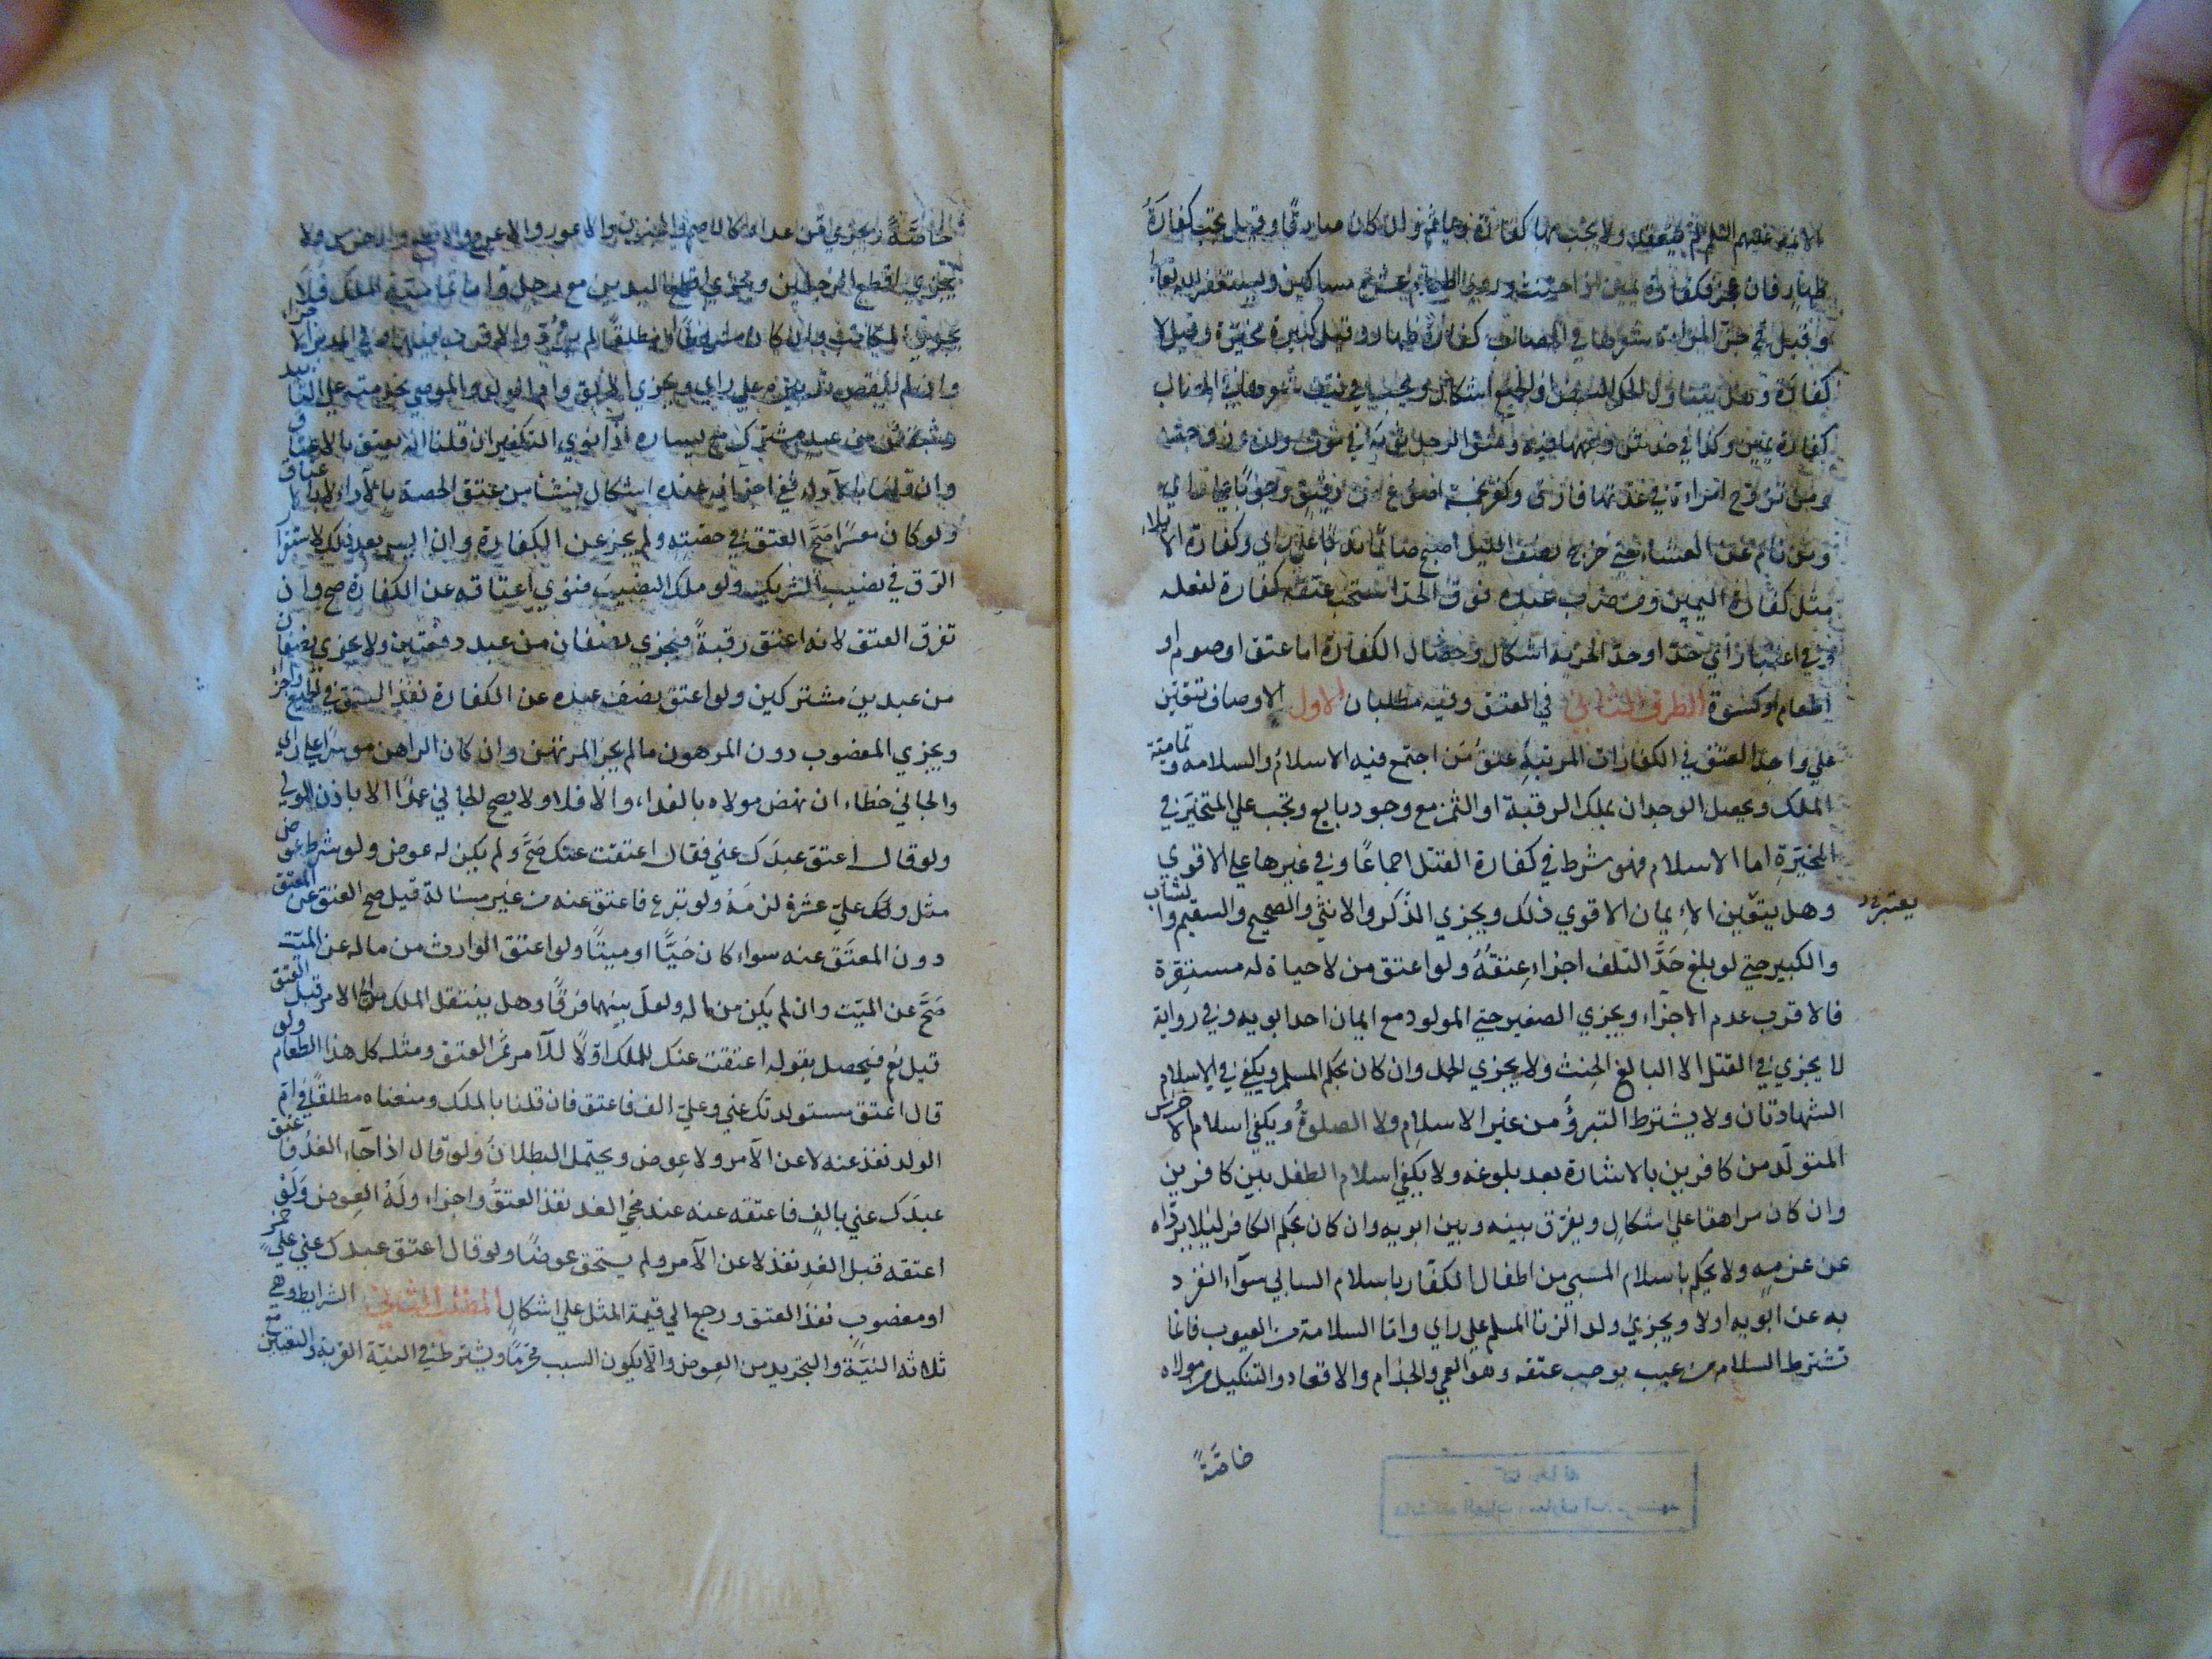 الائمة عليهم السلم لم ينعقد ولا يجب بها كفارة ويأثم ولو كان صادقا وقيل تجب كفارة
ظهار فان عجز فكفارة يمين وروي اطعام عشرة مساكين ويستغفر الله تعالى
وقيل في جز المراة شعرها في المصائب كفارة ظهار وقيل كبيرة مخيرة وقيل لا
كفارة وهل يتناول الحكم البعض او الجميع اشكال ويجب في نتف شعرها في المصاب
كفارة يمين وكذا في خدش وجهها فيه وشق الرجل ثوبه في موت ولده او زوجته
ومن تزوج امراة في عدتها فارق وكفر بخمسة اصوع من دقيق وجوبا على راي
ومن نام عن العشاء حتى خرج نصف الليل اصبح صائما ندبا على راي وكفارة الايلاء
مثل كفارة اليمين ومن ضرب عبده فوق الحد استحب عتقه كفارة لفعله
وفي اعتبار اي حد او حد الحرية اشكال وخصال الكفارة اما عتق او صوم او
اطعام او كسوة الطرف الثاني في العتق وفيه مطلبان الاول الاوصاف تتعين
على واجد العتق في الكفارات المرتبة عتق من اجتمع فيه الاسلام والسلامه وتمامية
الملك ويحصل الوجدان بملك الرقبة او الثمن مع وجود بايع وتجب على المتخير في
المخيرة اما الاسلام فهو شرط في كفارة القتل اجماعا وفي غيرها على الاقوى
وهل يتعين الايمان الاقوي ذلك ويجزي الذكر والانثى والصحيح والسقيم والشاب
يعتبر
والكبير حتى لو بلغ حد التلف اجزاء عتقه ولو اعتق من لا حياة له مستقرة
فالاقرب عدم الاجزاء ويجزي الصغير حتى المولود مع ايمان احد ابويه وفي رواية
لا يجزي في القتل الا البالغ الحنث ولا يجزي الحمل وان كان بحكم المسلم ويكفي في الاسلام
الشهادتان ولا يشترط التبرؤ من غير الاسلام ولا الصلوة ويكفي اسلام الاخرس
المتولد من كافرين بالاشارة بعد بلوغه ولا يكفي اسلام الطفل بين كافرين
وان كان مراهقا على اشكال ويفرق بينه وبين ابويه وان كان بحكم الكافر ليلا يرداه
عن عزمه ولا يحكم باسلام المسبي من اطفال الكفار باسلام السابي سواء انفرد
به عن ابويه اولا ويجزي ولد الزنا المسلم على راي واما السلامة من العيوب فانما
تشترط السلامه من عيب يوجب عتقه وهو العمي والجذام والاقعاد والتنكيل من مولاه
خاصة
خاصة ويجزي من عداه كالاصم والاعور والاعرج والاقطع والاخرس ولا
يجزي اقطع الرجلين ويجزي اقطع اليدين مع رجل واما تمامية الملك فلا
يجزي المكاتب وان كان مشروطا او مطلقا لم يؤد والاقرب في المدبر الاجزاء
وان لم ينقض تدبيره على راي ويجزي الابق وام الولد والموصي بخدمته على التابيد
وشقص من عبد مشترك مع يساره اذا نوي التكفير ان قلنا انه يعتق بالاعتاق
وان قلنا بالاداء ففي اجزائه عنده اشكال ينشأ من عتق الحصة بالاداء لا بالاعتاق
ولو كان معسرا صح العتق في حصته ولم يجز عن الكفارة وان ايسر بعد ذلك لاستقرار
الرق في نصيب الشريك ولو ملك النصيب فنوي اعتاقه عن الكفارة صح وان
تفرق العتق لانه اعتق رقبة فيجزي نصفان من عبد دفعتين ولا يجزي نصفان
من عبدين مشتركين ولو اعتق نصف عبده عن الكفارة نفذ العتق في الجميع واجزأ
ويجزي المغصوب دون المرهون ما لم يجز المرتهن وان كان الراهن موسرا على راي
والجاني خطاء ان نهض مولاه بالفداء والا فلا ولا يصح الجاني عمدا الا باذن الولي
ولو قال اعتق عبدك عني فقال اعتقت عنك صح ولم يكن له عوض ولو شرط عوض
مثل ولك علي عشرة لزمه ولو تبرع فاعتق عنه من غير مسالة قيل صح العتق عن المعتق
دون المعتق عنه سواء كان حيا او ميتا ولو اعتق الوارث من ماله عن الميت
صح عن الميت وان لم يكن من ماله ولعل بينهما فرقا وهل ينتقل الملك الى الامر قبل العتق
قيل نعم فيحصل بقوله اعتقت عنك الملك اولا للآمر ثم العتق ومثله كل هذا الطعام ولو
قال اعتق مستولدتك عني وعلي الف فاعتق فان قلنا بالملك ومنعناه مطلقا في ام
الولد نفذ عنه لا عن الآمر ولا عوض ويحتمل البطلان ولو قال اذا جاء الغد فاعتق
عبدك عني بالف فاعتقه عنه عند مجي الغد نفذ العتق واجزاء وله العوض ولو
اعتقه قبل الغد نفذ لا عن الآمر ولم يستحق عوضا ولو قال اعتق عبدك عني على خمر
او مغصوب نفذ العتق ورجع الى قيمة المثل على اشكال المطلب الثاني الشرايط وهي
ثلاثه النية والتجريد من العوض والا يكون السبب محرما ويشترط في النية القربة والتعيين